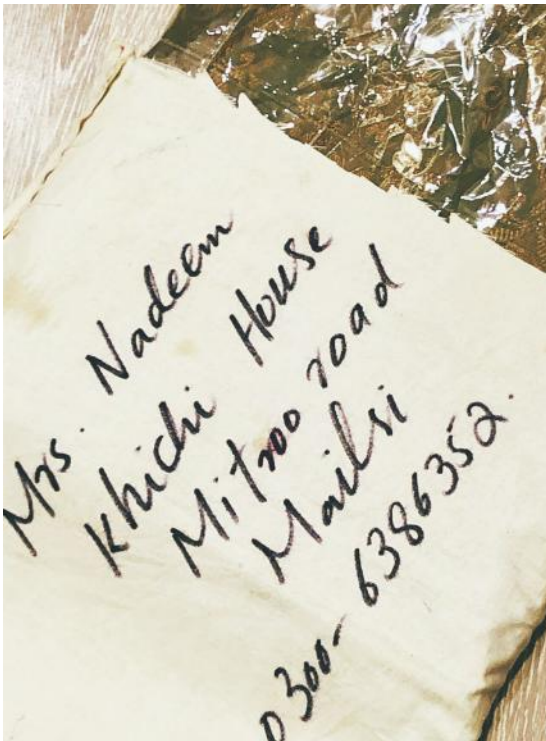 Mrs. Nadeem
Khichi House
Mitroo road
Mailsi
0300-6386352.